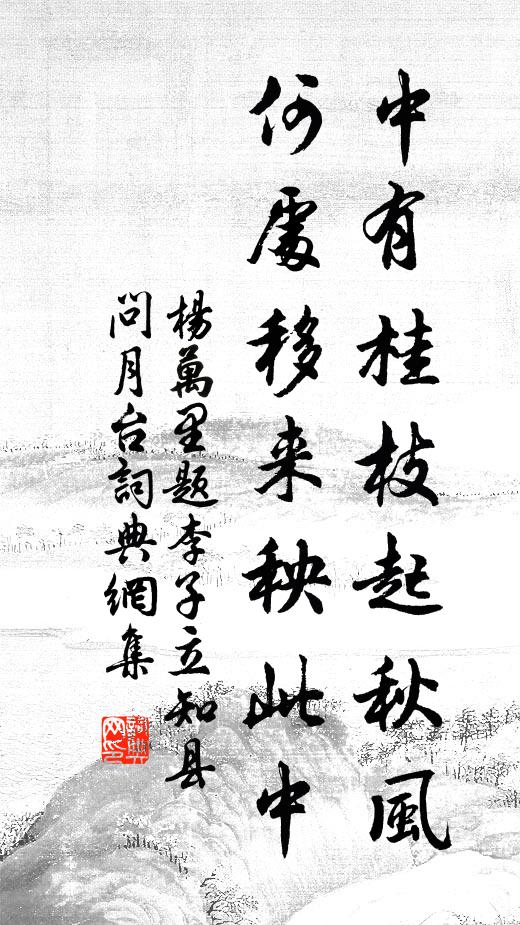 中有桂枝起秋風
何處移来秧此中
楊萬里題李子立知县
問月台詞典網集
詞典网印